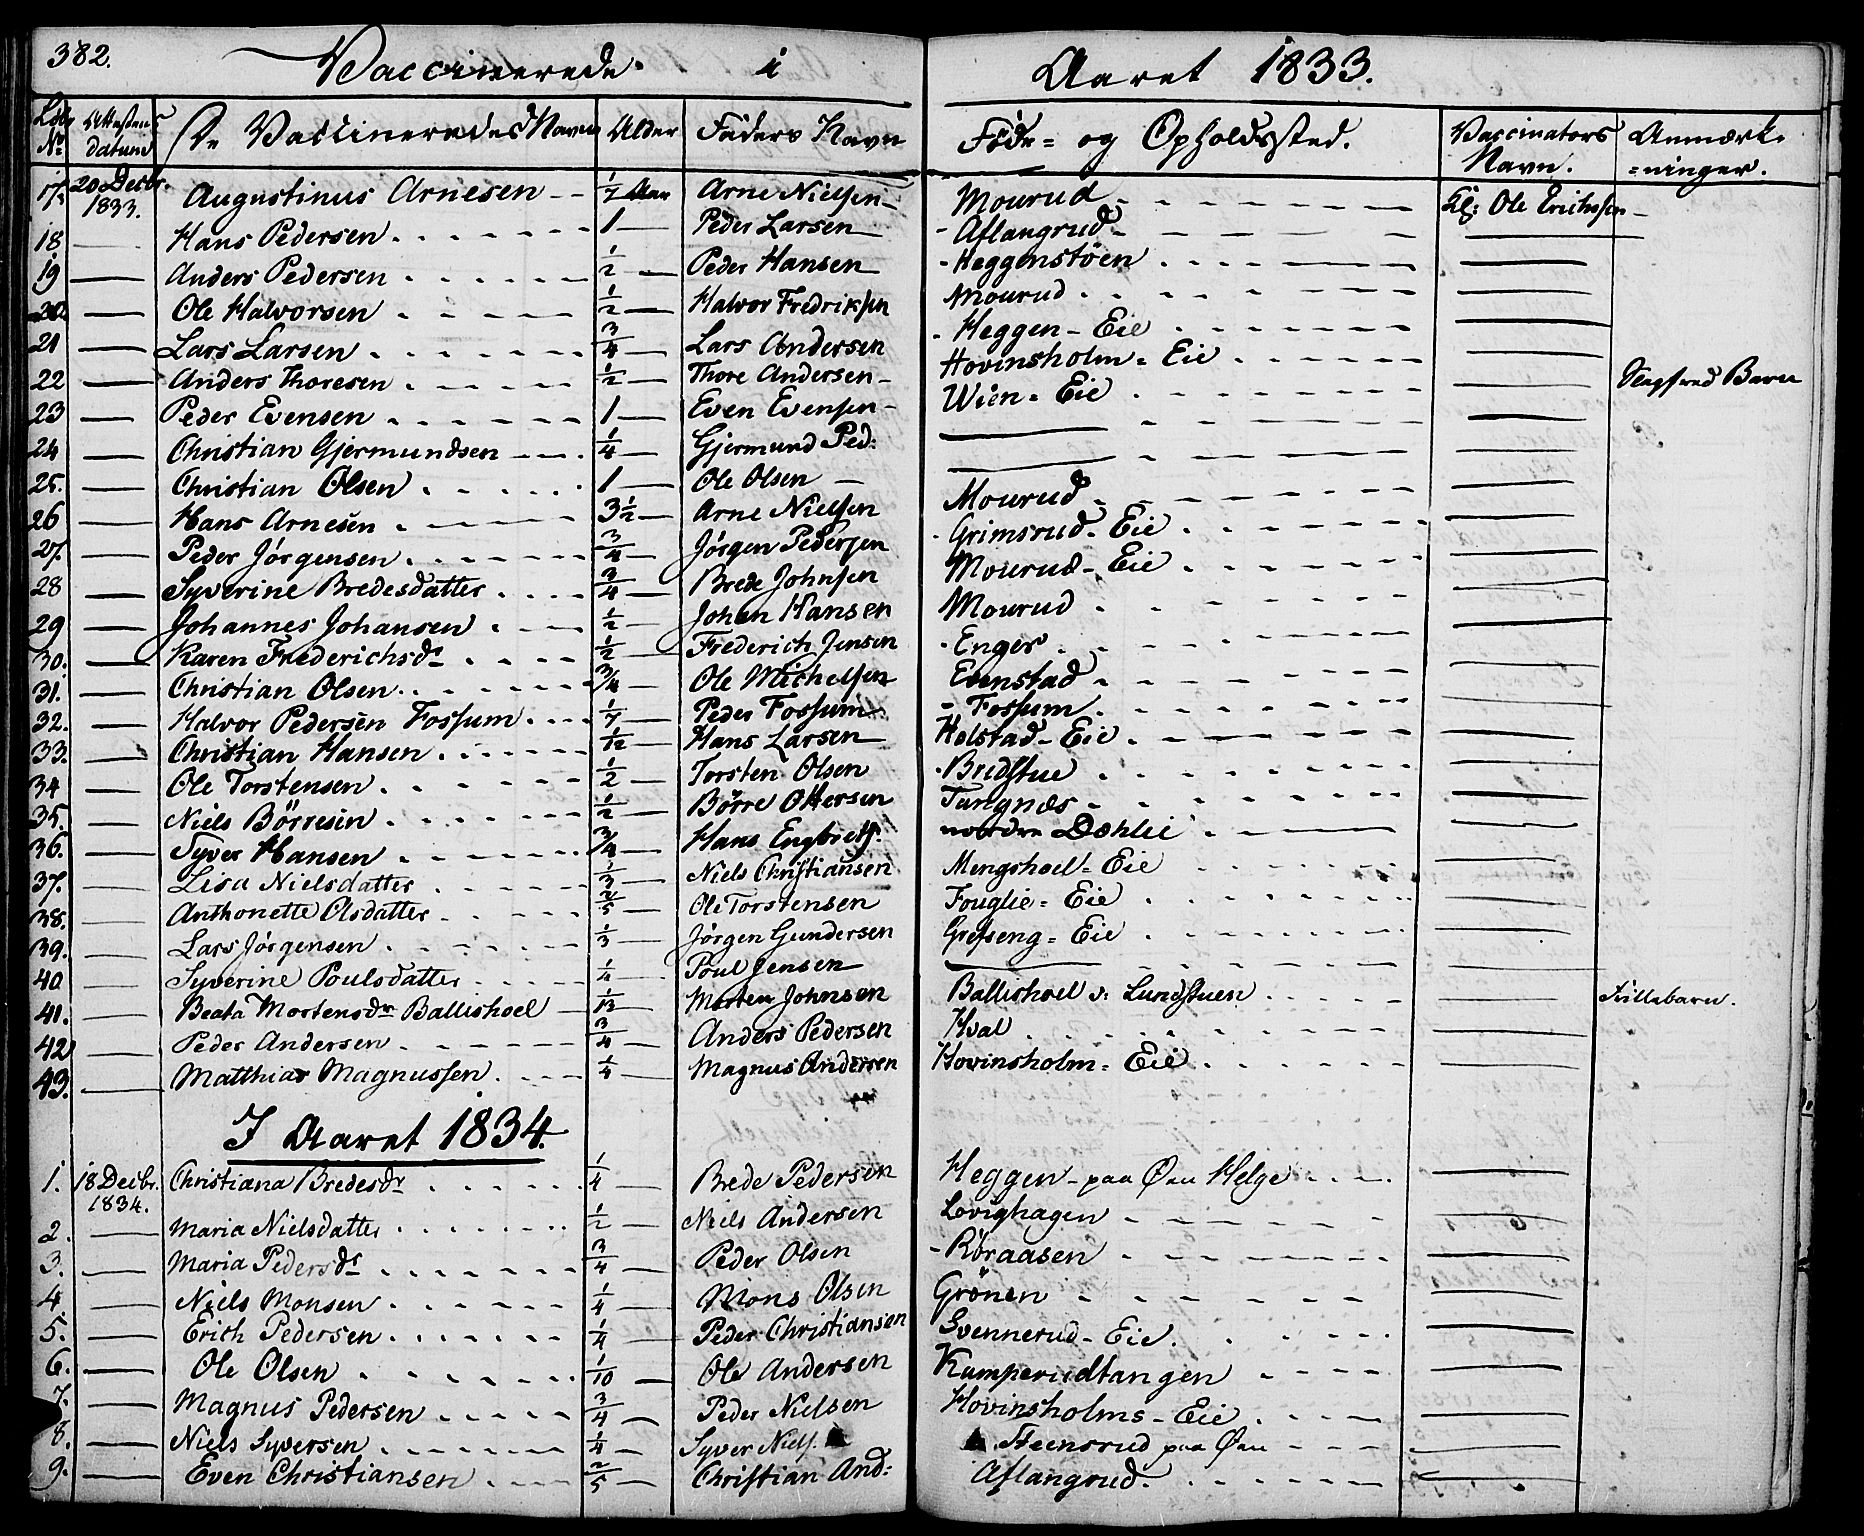 382. Vaccinerede i Aaret 1833.
Löb. No. Attestens datum De Vaccineredes Navne Alder Faders Navn Föde= og Opholdssted. Vaccinators Navn. Anmærk-=ninger.
17. 20 Decbr. 1833. Augustinus Arnesen 1/7 Aar Arne Nielsen Mourud Kl: Ole Erichsen
18 Hans Pedersen 1 Peder Larsen Aflangrud
19 Anders Pedersen 1/2 Peder Hansen Heggenstöen
20 Ole Halvorsen 1/2 Halvor Fredriksen Mourud
21 Lars Larsen 3/4 Lars Andersen Heggen - Eie
22 Anders Thoresen 1/2 Thore Andersen Hovinsholm = Eie Barn
23 Peder Evensen 1 Even Evensen Wien = Eie
24 Christian Gjermundsen 1/4 Gjermund Ped:
25. Christian Olsen 1 Ole Olsen
26 Hans Arnesen 3 1/2 Arne Nielsen Mourud
27. Peder Jörgensen 3/4 Jörgen Pedersen Grimsrud - Eie
28 Syverine Bredesdatter 3/4 Brede Johnsen Mourud - Eie
29 Johannes Johansen 1/2 Johan Hansen Mourud
30. Karen Frederichsdr 1/2 Frederich Jensen Enger
31. Christian Olsen 3/4 Ole Michelsen Evenstad
32. Halvor Pedersen Fossum 1/7 Peder Fossum Fossum
33. Christian Hansen 1/12 Hans Larsen Holstad - Eie
34 Ole Torstensen 1/2 Torsten Olsen Bredstue
35. Niels Börresen 1/2 Börre Ottersen Tangnæs
36. Syver Hansen 3/4 Hans Engbrets. nordre Dæhlie
37. Lisa Nielsdatter 1/3 Niels Christiansen Mengshoel = Eie
38. Anthonette Olsdatter 2/5 Ole Torstensen Fouglie = Eie
39. Lars Jörgensen 1/3 Jörgen Gundersen Grefseng = Eie
40 Syverine Poulsdatter 1/4 Poul Jensen
41. Beata Mortensdr Ballishoel 1/12 Morten Johnsen Ballishoel v: Lundstuen Tvillebarn.
42 Peder Andersen 3/4 Anders Pedersen Hval
43. Matthias Magnussen 1/4 Magnus Andersen Hovinsholm = Eie
I Aaret 1834.
1. 18 Decbr. 1834. Christiana Bredesdr 1/4 Brede Pedersen Heggen - paa Øen Helge
2. Maria Nielsdatter 1/2 Niels Andersen Lövighagen
3. Maria Pedersdr 3/4 Peder Olsen Röraasen
4 Niels Monsen 1/4 Mons Olsen Grönen
5. Erich Pedersen 1/4 Peder Christiansen Svennerud - Eie.
6. Ole Olsen 1/10 Ole Andersen Kamperudtangen
7. Magnus Pedersen 3/4 Peder Nielsen Hovinsholms - Eie
8. Niels Syversen 1/4 Syver Niels. Steensrud paa Øen
9. Even Christiansen 2/5 Christian And: Aflangrud.